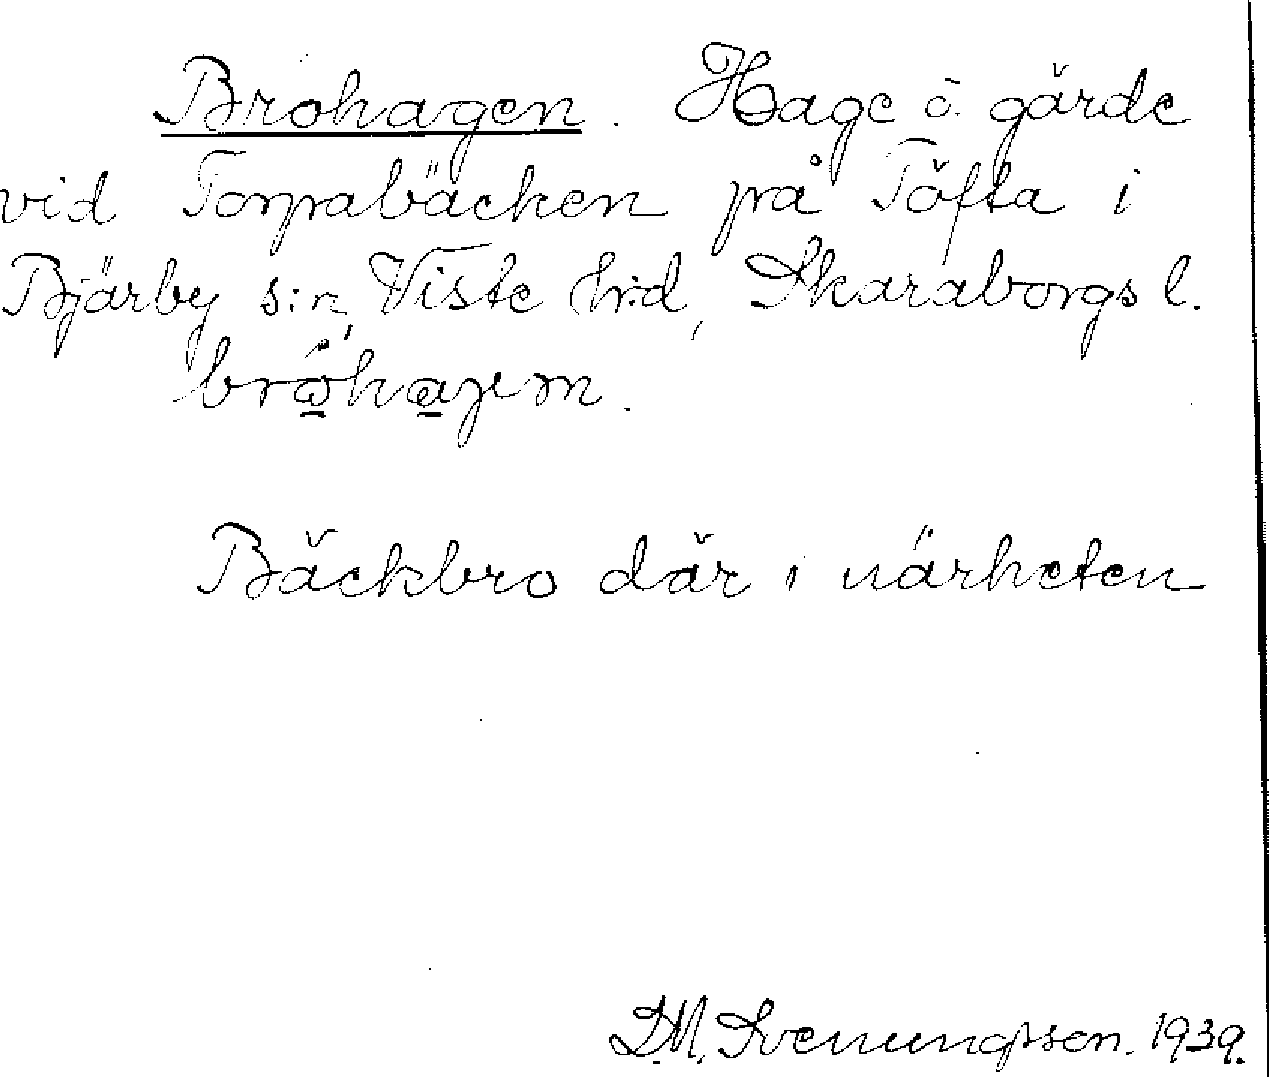 Brohagen. Hage å gärde
vid Torpabäcken på Töfta i
Bjärby s:n, Viste hd, Skaraborgs l.

Bäckbro där i närheten
D.M. Svenungsson. 1939.